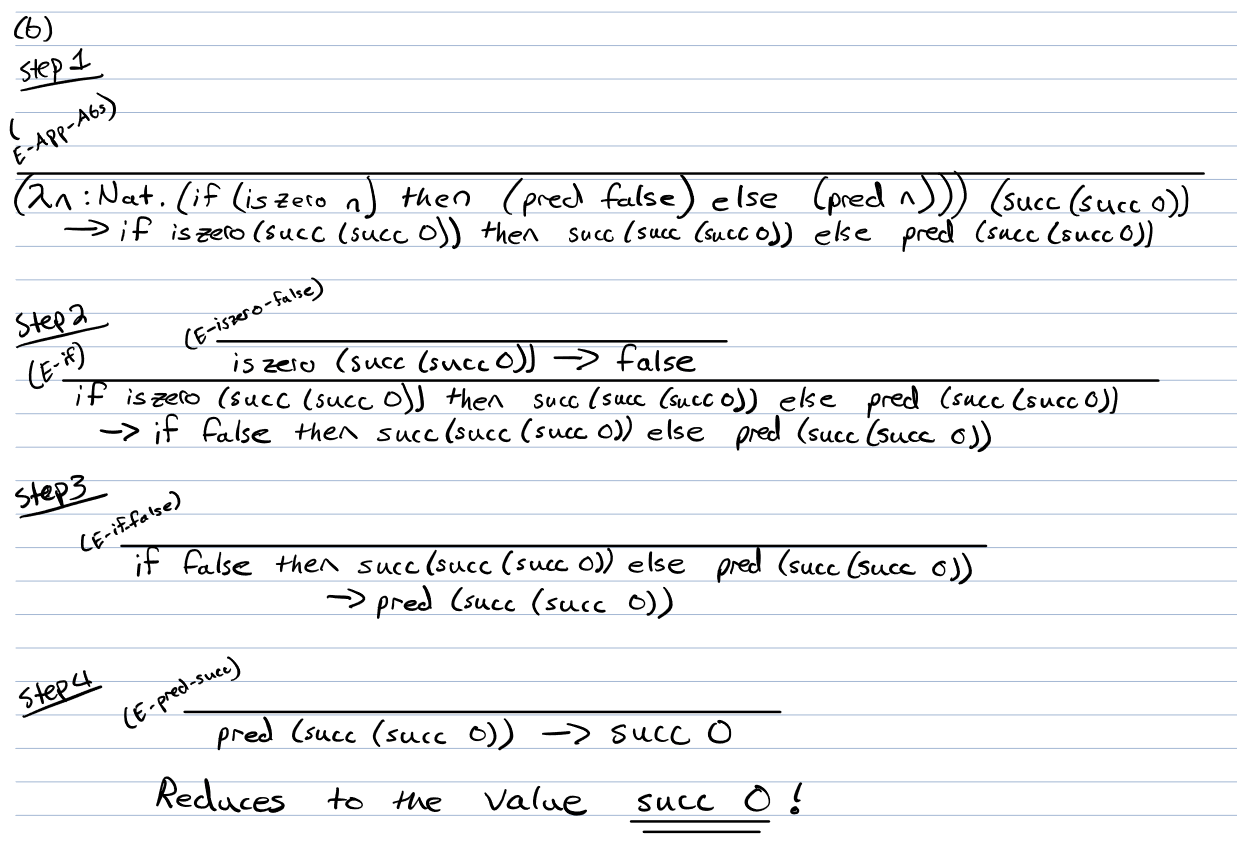 (b)
Step 1
(E-App-Abs)
(λn:Nat. (if (iszero n) then (pred false) else (pred n))) (succ (succ 0))
→ if iszero (succ (succ 0)) then succ (succ (succ 0)) else pred (succ (succ 0))
Step 2
(E-iszero-false)
iszero (succ (succ 0)) → false
(E-if)
if iszero (succ (succ 0)) then succ (succ (succ 0)) else pred (succ (succ 0))
→ if false then succ (succ (succ 0)) else pred (succ (succ 0))
Step 3
(E-if-false)
if false then succ (succ (succ 0)) else pred (succ (succ 0))
→ pred (succ (succ 0))
Step 4
(E-pred-succ)
pred (succ (succ 0)) → succ 0
Reduces to the value succ 0!